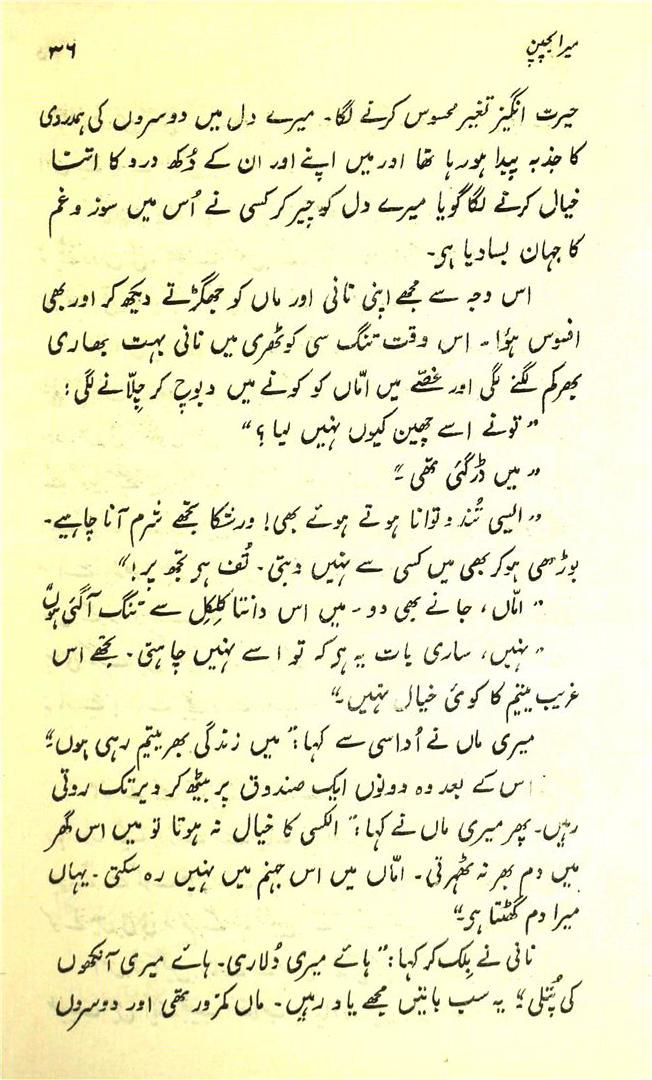 میرا بچپن
۳۶
حیرت انگیز تغیر محسوس کرنے لگا۔ میرے دل میں دوسروں کی ہمدردی
کا جذبہ پیدا ہو رہا تھا اور میں اپنے اور ان کے دُکھ درد کا اتنا
خیال کرنے لگا گویا میرے دل کو چیر کر کسی نے اُس میں سوز و غم
کا جہان بسا دیا ہو۔
اس وجہ سے مجھے اپنی نانی اور ماں کو جھگڑتے دیکھ کر اور بھی
افسوس ہؤا۔ اس وقت تنگ سی کوٹھری میں نانی بہت بھاری
بھرکم لگنے لگی اور غصّے میں امّاں کو کونے میں دبوچ کر چلّانے لگی:
”تو نے اسے چھین کیوں نہیں لیا؟“
”میں ڈر گئی تھی۔“
”ایسی تُند و توانا ہوتے ہوئے بھی! ورشکا تجھے شرم آنا چاہیے۔
بوڑھی ہو کر بھی میں کسی سے نہیں دبتی۔ تُف ہو تجھ پر!“
”امّاں، جانے بھی دو۔ میں اس دانتا کِلکِل سے تنگ آگئی ہوں“
”نہیں، ساری بات یہ ہو کہ تو اسے نہیں چاہتی۔ تجھے اس
غریب یتیم کا کوئی خیال نہیں۔“
میری ماں نے اُداسی سے کہا: ”میں زندگی بھر یتیم رہی ہوں۔“
اس کے بعد وہ دونوں ایک صندوق پر بیٹھ کر دیر تک روتی
رہیں۔ پھر میری ماں نے کہا: ”الکسی کا خیال نہ ہوتا تو میں اس گھر
میں دم بھر نہ ٹھہرتی۔ امّاں میں اس جہنم میں نہیں رہ سکتی۔ یہاں
میرا دم گھٹتا ہو۔“
نانی نے بِلک کر کہا: ”ہائے میری دُلاری۔ ہائے میری آنکھوں
کی پُتلی“ یہ سب باتیں مجھے یاد رہیں۔ ماں کمزور تھی اور دوسروں